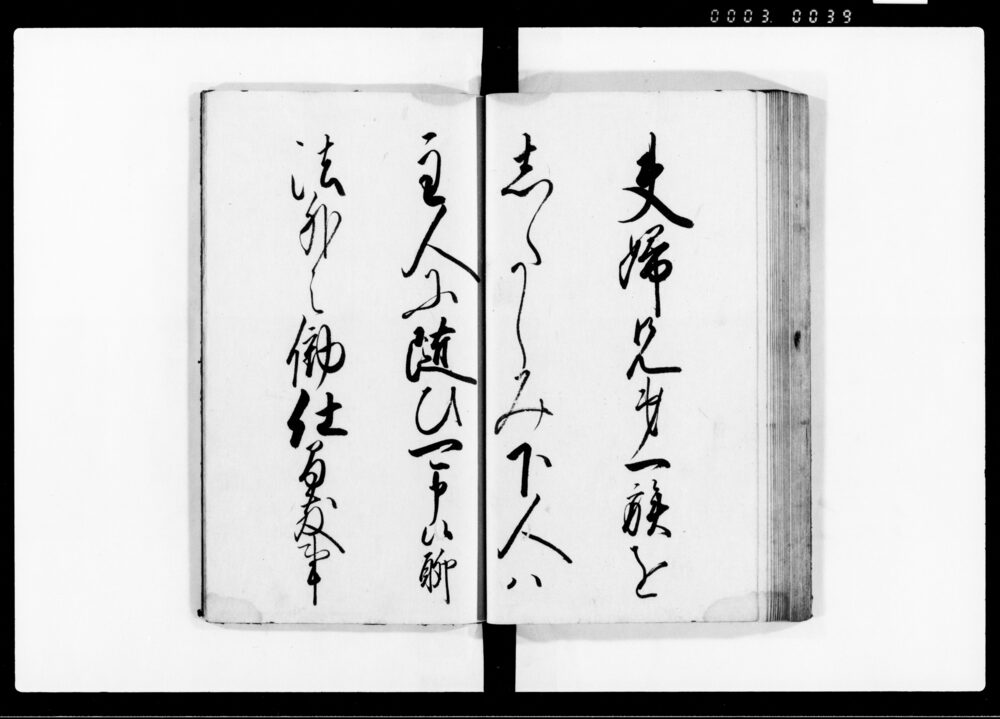 0003. 0039
夫婦兄弟一族を
志たしみ下人ハ
主人に随ひ可申候聊
法外之働仕間敷事